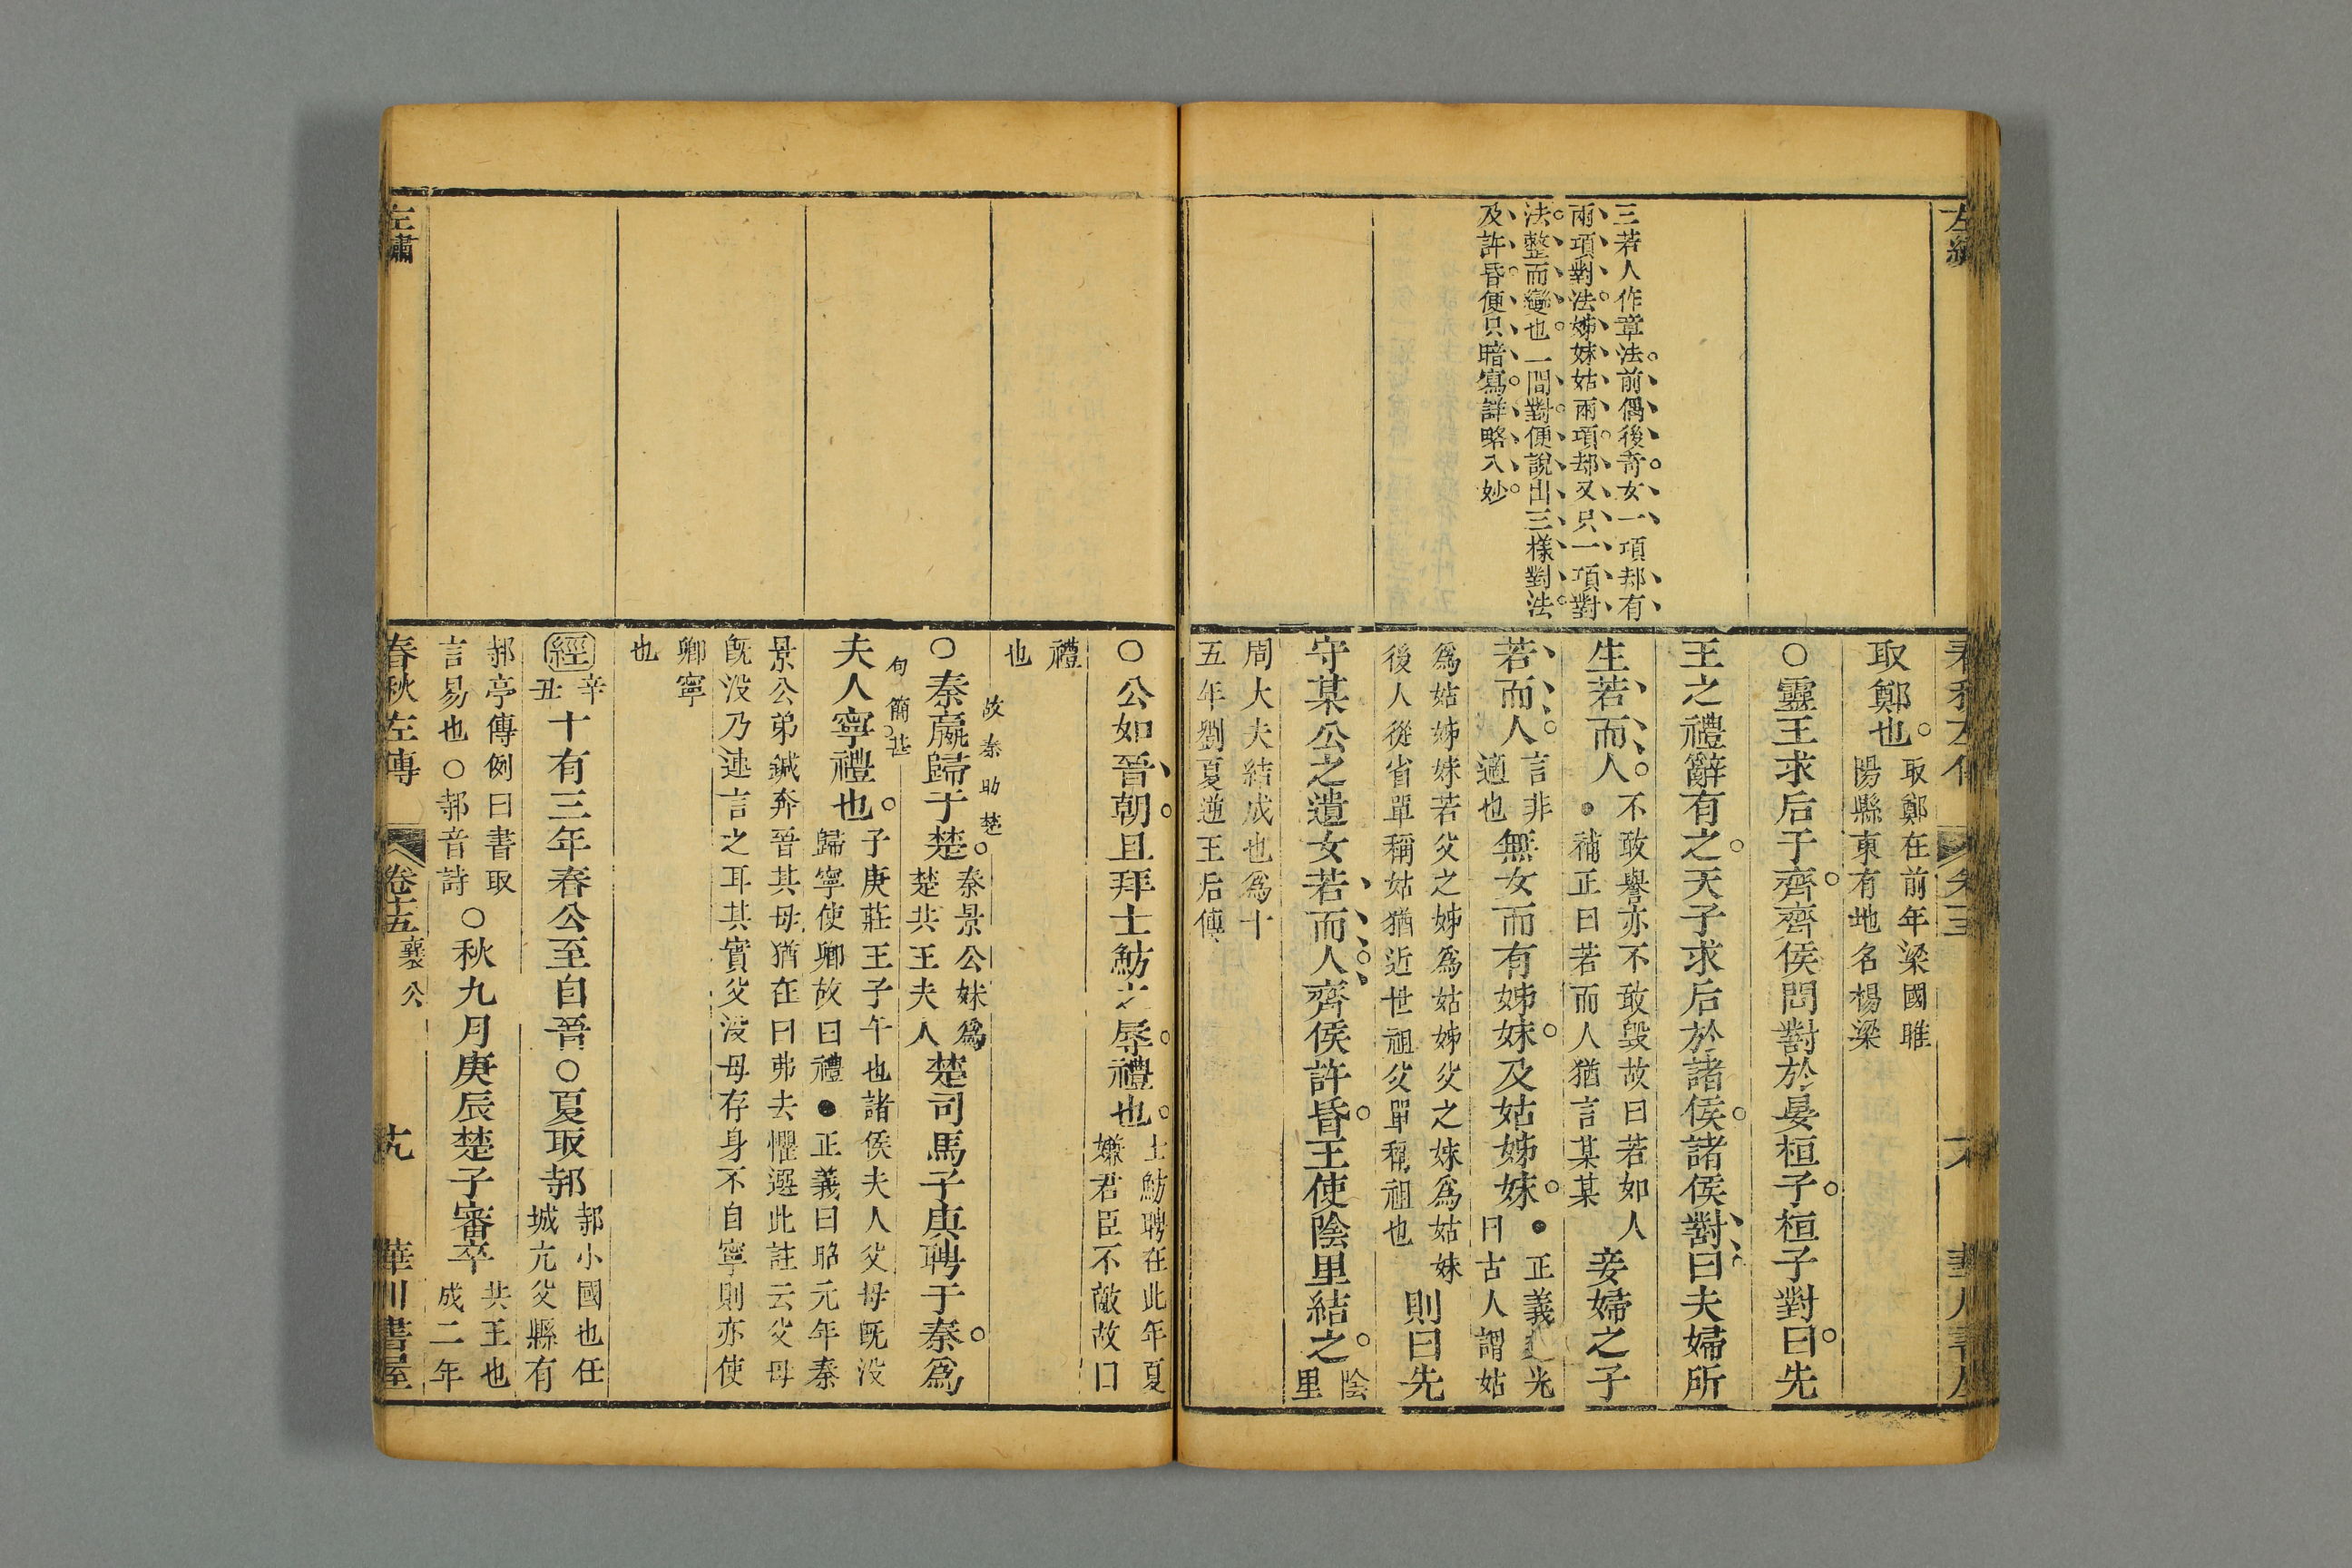 三若人作章法前偶後竒女一項却有
兩項對法姊妹姑兩項却又只一項對
法整而變也一問對便說出三樣對法
及許昏便只暗寫詳略入妙
取鄭也
取鄭在前年梁國睢
陽縣東有地名楊梁
○靈王求后于齊齊侯問對於晏桓子桓子對曰先
王之禮辭有之天子求后於諸侯諸侯對曰夫婦所
生若而人
不敢譽亦不敢毀故曰若如人
●補正曰若而人猶言某某
妾婦之子
若而人
言非
適也
無女而有姊妹及姑姊妹
●正義光
曰古人謂姑
爲姑姊妹若父之姊爲姑姊父之妹爲姑妹
後人從省單稱姑猶近世祖父單稱祖也
則曰先
守某公之遺女若而人齊侯許昏王使陰里結之
陰
里
周大夫結成也爲十
五年劉夏逆王后傳
○公如晉朝且拜士魴之辱禮也
士魴聘在此年夏
嫌君臣不敵故曰
禮
也
○秦嬴歸于楚
故秦助楚
秦景公妹爲
楚共王夫人
楚司馬子庚聘于秦爲
夫人寧禮也
句簡甚
子庚莊王子午也諸侯夫人父母既没
歸寧使卿故曰禮●正義曰昭元年秦
景公弟鍼奔晉其母猶在曰弗去懼選此註云父母
既没乃連言之耳其實父没母存身不自寧則亦使
卿寧
也
經
辛
丑
十有三年春公至自晉○夏取邿
邿小國也任
城亢父縣有
邿亭傳例曰書取
言易也○邿音詩
○秋九月庚辰楚子審卒
共王也
成二年
左繡
春秋左傳
卷十五
襄公
十九
華川書屋